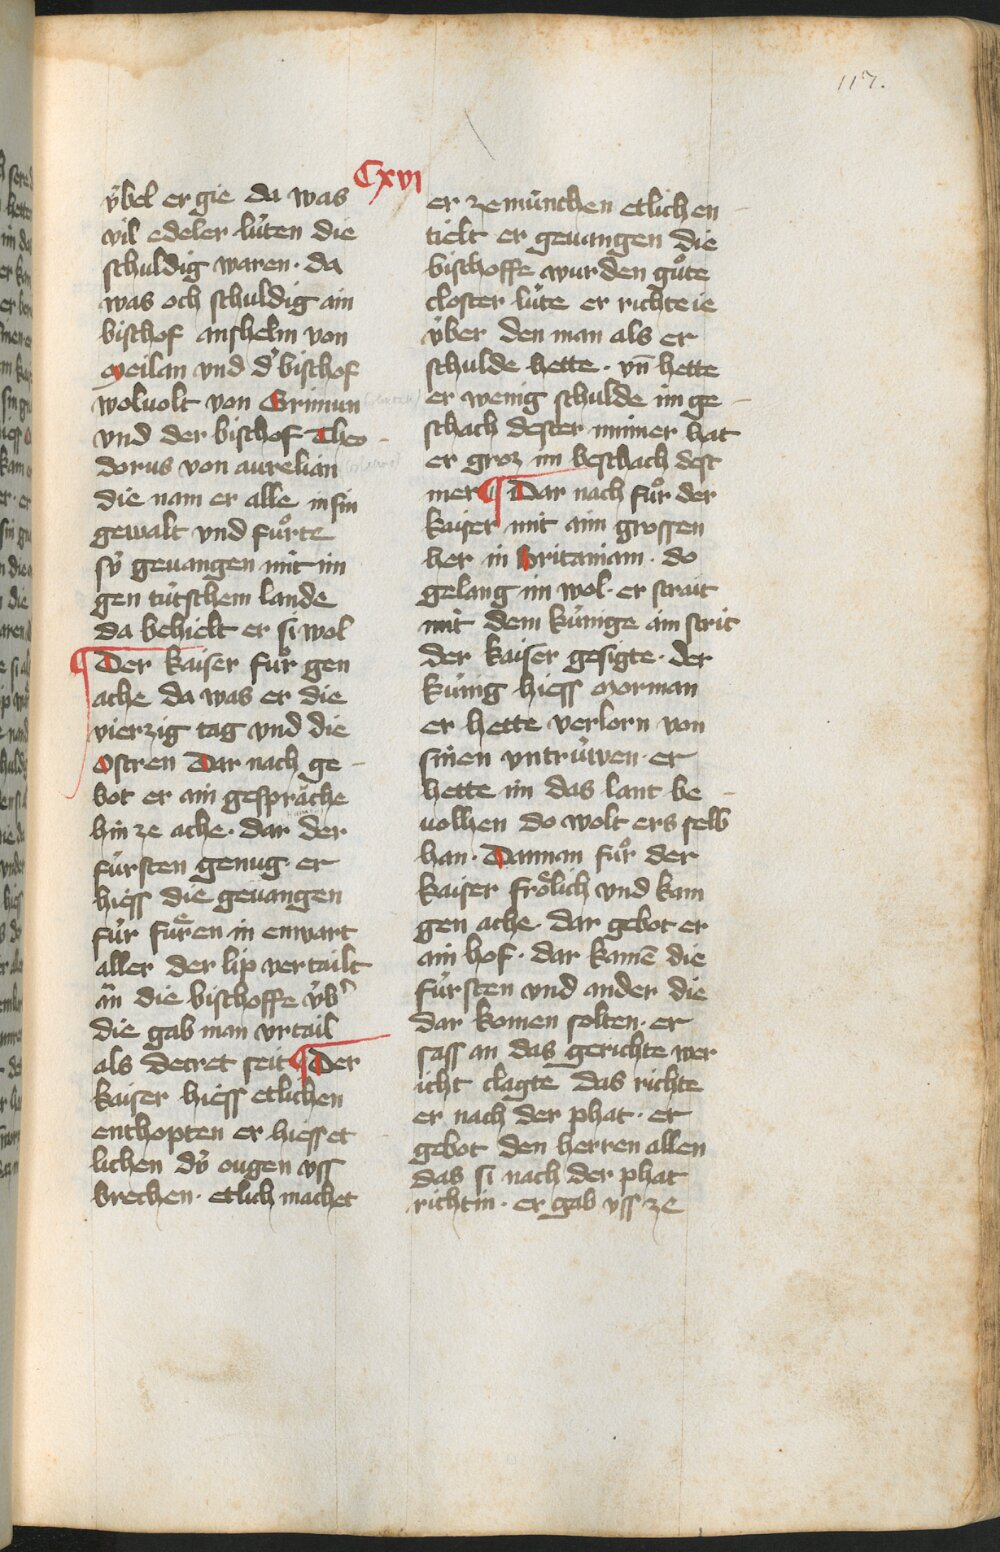 117.
Cxvi
v̓bel er gie da was
vil edeler lu̓ten die
schuldig waren · da
was och schuldig ain
bischof anshelm von
Meilan vnd d' bischof
wolvolt von Grimun
vnd der bischof Theo
dorus von aurelian
die nam er alle in sin
gewalt vnd fuͦrte
sy̓ geuangen mit im
gen tu̓tschem lande
da behielt er si wol
¶ Der kaiser fuͦr gen
ache da was er die
vierzig tag vnd die
Ostren Dar nach ge
bot er ain gespräche
hin ze ache · dar der
fu̓rsten genug · er
hiess die geuangen
fu̓r fuͤren in enwart
aller der lip vertailt
ân die bischoffe v̓b'
die gab man vrtail
als decret seit ¶ Der
kaiser hiess etlichen
enthopten er hiess et
lichen dy̓ ougen vss
brechen · etlich machet
er ze mu̓nchen etlichen
tielt er geuangen die
bischoffe wurden guͦte
closter lu̓te er richte ie
v̓ber den man als er
schulde hette · vn̄ hette
er wenig schulde im ge
schach dester minner hat
er groz im beschach dest
mer ¶ Dar nach fuͦr der
kaiser mit aim grossen
her in Britaniam · do
gelang im wol · er strait
mit dem ku̓nige am strit
der kaiser gesigte · der
ku̓nig hiess Morman
er hette verlorn von
sinen vntru̓wen · er
hette im das lant be
uolhen do wolt ers selb
han · Dannan fuͦr der
kaiser froͤlich vnd kam
gen ache · dar gebot er
ain hof · dar kamē die
fu̓rsten vnd ander die
dar komen solten · er
sass an das gerichte wer
icht clagte das richte
er nach der phat · er
gebot den herren allen
das si nach der phat
richtin · er gab vss ze